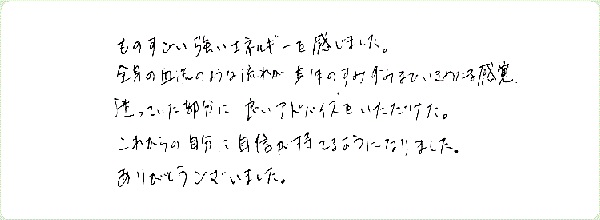 ものすごい強いエネルギーを感じました。
全身の血流のような流れが 身体のすみずみまでいきわたる感覚
迷っていた部分に 良いアドバイスをいただけた。
これからの自分に自信が持てるようになりました。
ありがとうございました。